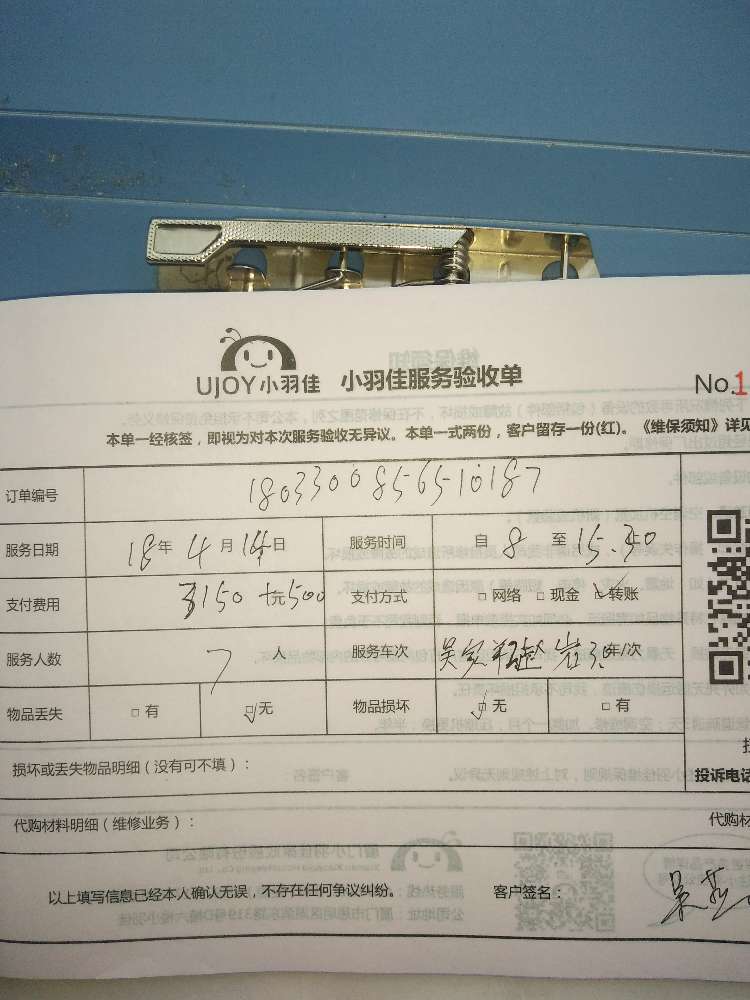 UJOY小羽佳 小羽佳服务验收单 No.1
本单一经核签，即视为对本次服务验收无异议。本单一式两份，客户留存一份(红)。《维保须知》详见
订单编号 1803300856510187
服务日期 18年4月14日 服务时间 自8至15.30
支付费用 3150+元500 支付方式 □网络 □现金 □转账
服务人数 7人 服务车次 年/次
物品丢失 □有 □无 物品损坏 □无 □有
损坏或丢失物品明细（没有可不填）：
投诉电话
代购材料明细（维修业务）： 代购材
以上填写信息已经本人确认无误，不存在任何争议纠纷。 客户签名： 吴